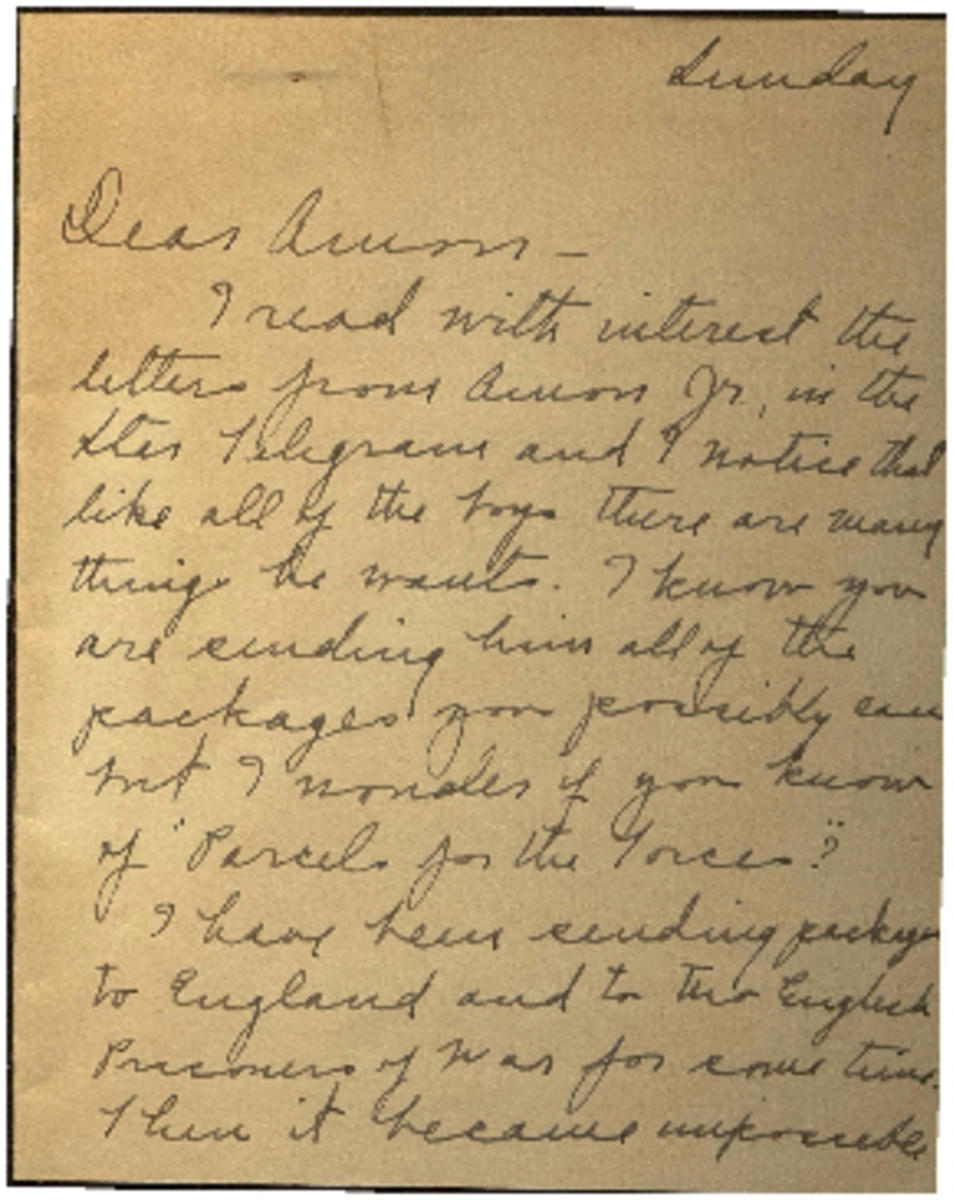 Sunday
Dear Amon —
I read with interest the
letters from Amon Jr, in the
Star Telegram and I notice that
like all of the boys there are many
things he wants. I know you
are sending him all of the
packages you possibly can
but I wonder if you know
of "Parcels for the Forces"?
I have been sending packages
to England and to two English
Prisoners of War for some time.
Then it became impossible